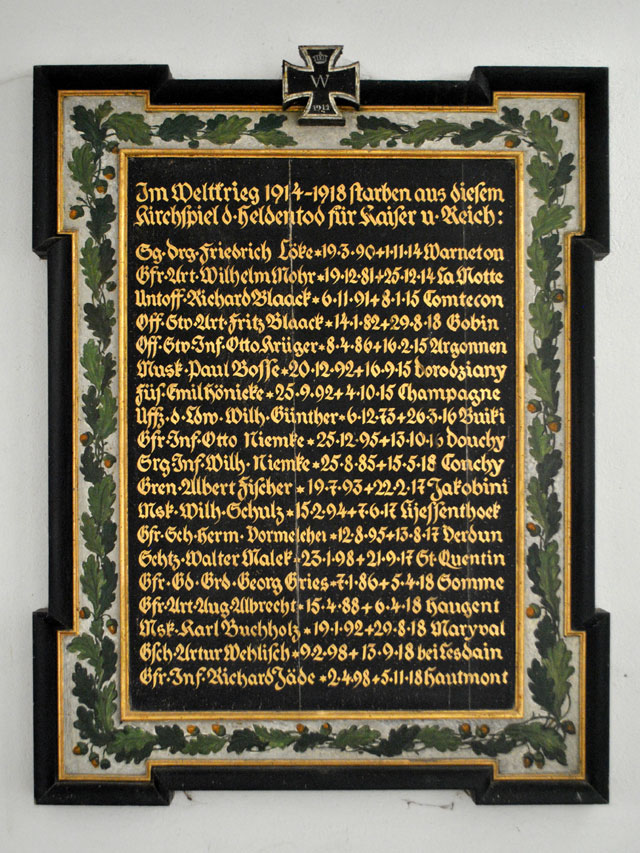 W
Im Weltkrieg 1914-1918 starben aus diesem
Kirchspiel d. Heldentod für Kaiser u. Reich:
Sg. drg. Friedrich Löke * 19.3.90 + 1.11.14 Warneton
Gfr. Art. Wilhelm Mohr * 19.12.81 + 25.12.14 La Motte
Untoff. Richard Blaack * 6.11.91 + 8.1.15 Comtecon
Off. Stv. Art. Fritz Blaack * 14.1.82 + 29.8.18 Gobin
Off. Stv. Inf. Otto Krüger * 8.4.86 + 16.2.15 Argonnen
Musk. Paul Bosse * 20.12.92 + 16.9.15 Dorodziany
Füs. Emil Hönicke * 25.9.92 + 4.10.15 Champagne
Uffz. d. Ldw. Wilh. Günther * 6.12.73 + 26.3.16 Buiki
Gfr. Inf. Otto Niemke * 25.12.95 + 13.10.16 Douchy
Srg. Inf. Wilh. Niemke * 25.8.85 + 15.5.18 Conchy
Gren. Albert Fischer * 19.7.93 + 22.2.17 Jakobini
Msk. Wilh. Schulz * 15.2.94 + 7.6.17 Kjessenthoek
Gfr. Sch. Herm. Dormelchei * 12.8.95 + 13.8.17 Verdun
Schtz. Walter Malek * 23.1.98 + 21.9.17 St. Quentin
Gfr. Gd. Grd. Georg Gries * 7.1.86 + 5.4.18 Somme
Gfr. Art. Aug. Albrecht * 15.4.88 + 6.4.18 Haugent
Msk. Karl Buchholz * 19.1.92 + 29.8.18 Maryval
Gsch. Artur Wehlisch * 9.2.98 + 13.9.18 bei Lesdain
Gfr. Inf. Richard Jäde * 2.4.98 + 5.11.18 Hautmont